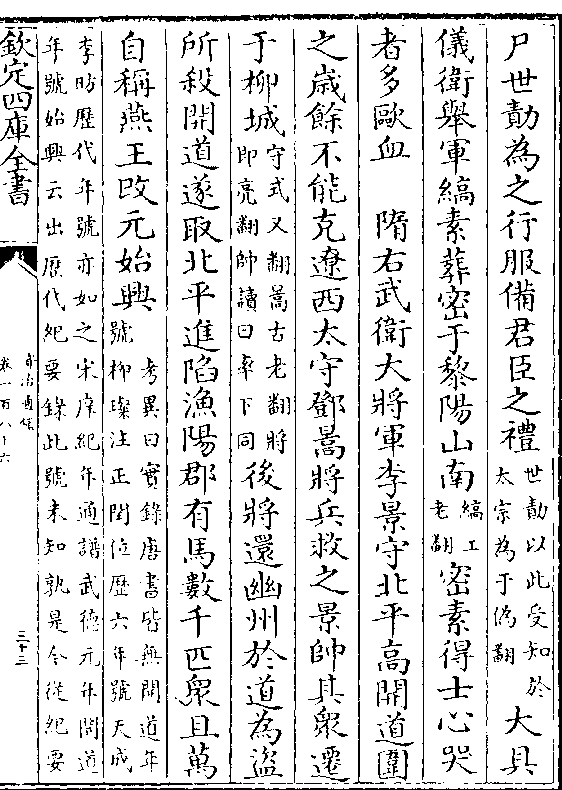 尸世勣為之行服備君臣之禮世勣以此受知於太宗為于偽翻大具
儀衛舉軍縞素葬密于黎陽山南縞工老翻密素得士心哭
者多歐血　隋右武衛大將軍李景守北平高開道圍
之歲餘不能克遼西太守鄧暠將兵救之景帥其衆遷
于柳城守式又翻暠古老翻將即亮翻帥讀曰率下同後將還幽州於道為盜
所殺開道遂取北平進陷漁陽郡有馬數千匹衆且萬
自稱燕王改元始興考異曰實錄唐書皆無開道年號柳璨注正閏位歷六年號天成
李昉歷代年號亦如之宋庠紀年通譜武德元年開道年號始興云出歷代紀要錄此號未知孰是今從紀要
欽定四庫全書
資治通鑑
卷一百八十六
三十三